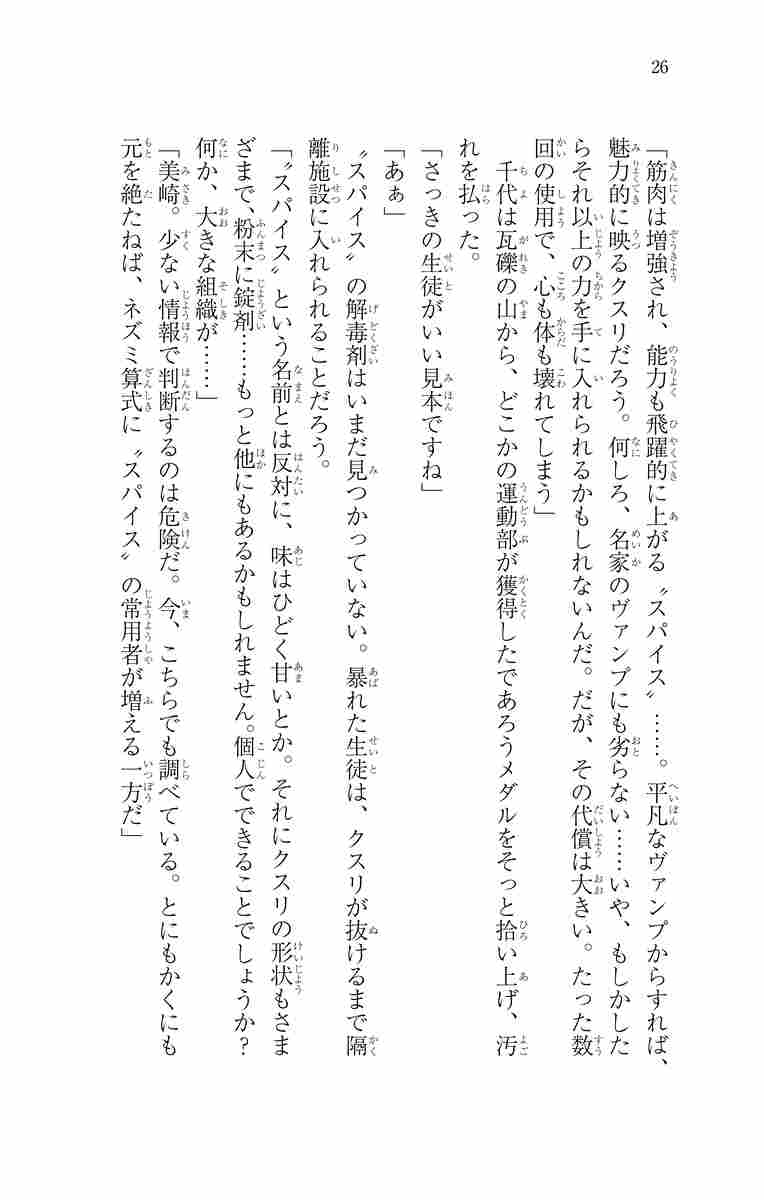 26
「筋肉は増強され、能力も飛躍的に上がる〝スパイス〟……。平凡なヴァンプからすれば、
魅力的に映るクスリだろう。何しろ、名家のヴァンプにも劣らない……いや、もしかした
らそれ以上の力を手に入れられるかもしれないんだ。だが、その代償は大きい。たった数
回の使用で、心も体も壊れてしまう」
　千代は瓦礫の山から、どこかの運動部が獲得したであろうメダルをそっと拾い上げ、汚
れを払った。
「さっきの生徒がいい見本ですね」
「あぁ」
　〝スパイス〟の解毒剤はいまだ見つかっていない。暴れた生徒は、クスリが抜けるまで隔
離施設に入れられることだろう。
「〝スパイス〟という名前とは反対に、味はひどく甘いとか。それにクスリの形状もさま
ざまで、粉末に錠剤……もっと他にもあるかもしれません。個人でできることでしょうか？
何か、大きな組織が……」
「美崎。少ない情報で判断するのは危険だ。今、こちらでも調べている。とにもかくにも
元を絶たねば、ネズミ算式に〝スパイス〟の常用者が増える一方だ」